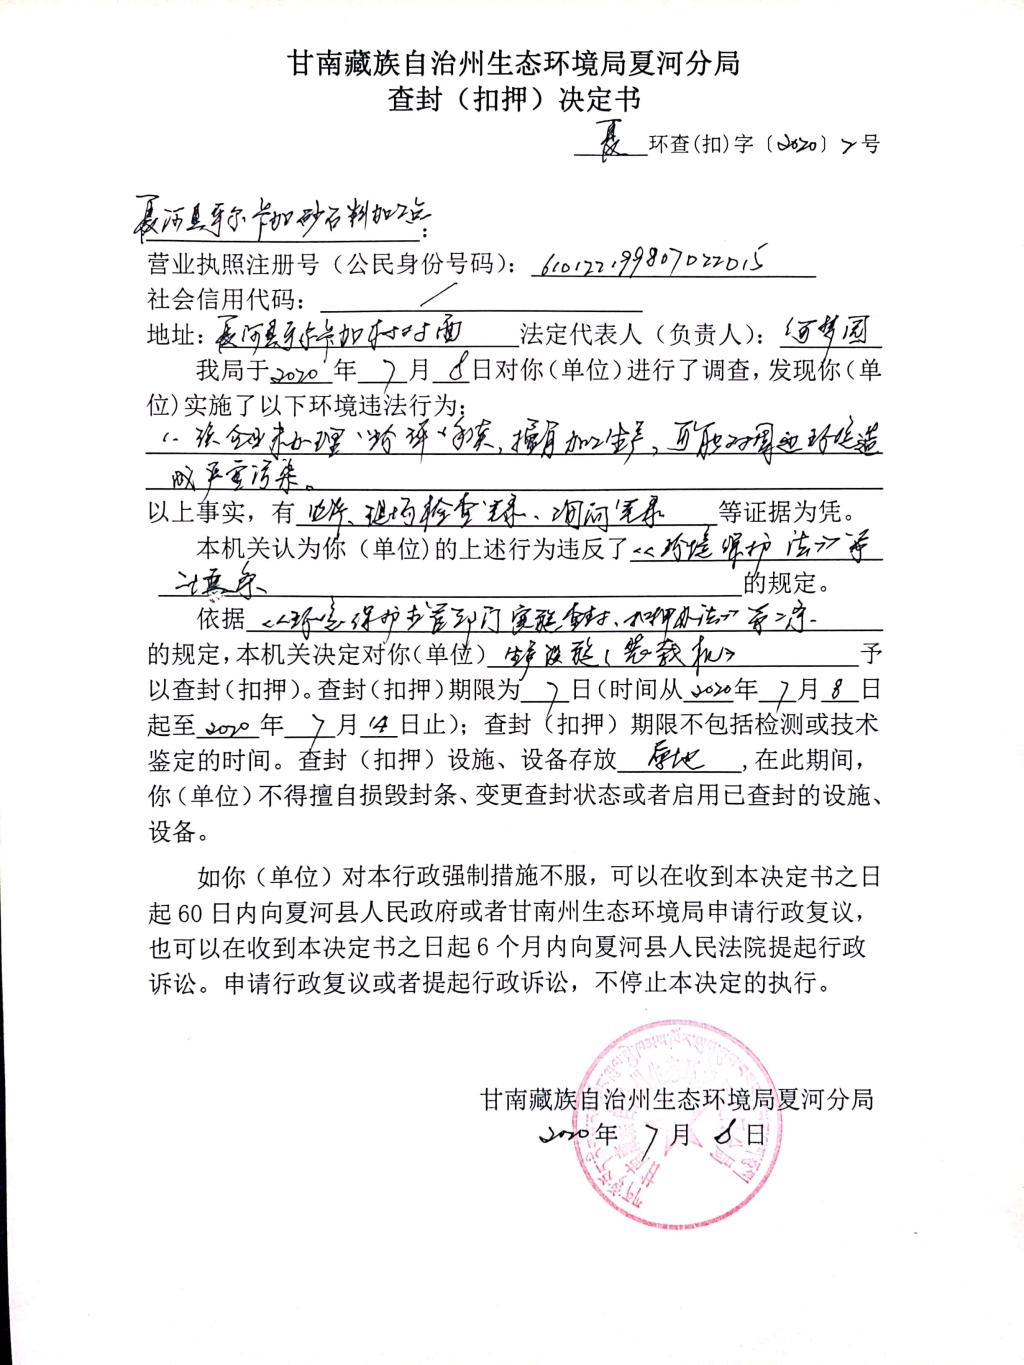 甘南藏族自治州生态环境局夏河分局
查封（扣押）决定书
夏 环查(扣)字〔2020〕7号
夏河县牙尔卡加砂石料加工点：
营业执照注册号（公民身份号码）： 610122199807022015
社会信用代码： /
地址：夏河县牙尔卡加村村西 法定代表人（负责人）：何梦园
我局于2020年 7月 8日对你(单位)进行了调查,发现你(单
位)实施了以下环境违法行为：
1、该企业未办理环评手续，擅自加工生产，可能对周边环境造
成严重污染。
以上事实，有 照片、现场检查笔录、询问笔录 等证据为凭。
本机关认为你（单位)的上述行为违反了《环境保护法》第
条 的规定。
依据《环境保护主管部门实施查封、扣押办法》第 条
的规定,本机关决定对你(单位) 生产设施（装载机） 予
以查封(扣押)。查封(扣押)期限为 7 日(时间从2020年 7月 8 日
起至2020年 7月14日止)；查封（扣押）期限不包括检测或技术
鉴定的时间。查封（扣押）设施、设备存放 原地 ,在此期间，
你（单位）不得擅自损毁封条、变更查封状态或者启用已查封的设施、
设备。
如你（单位）对本行政强制措施不服，可以在收到本决定书之日
起60日内向夏河县人民政府或者甘南州生态环境局申请行政复议，
也可以在收到本决定书之日起6个月内向夏河县人民法院提起行政
诉讼。申请行政复议或者提起行政诉讼，不停止本决定的执行。
甘南藏族自治州生态环境局夏河分局
2020年 7月 8日